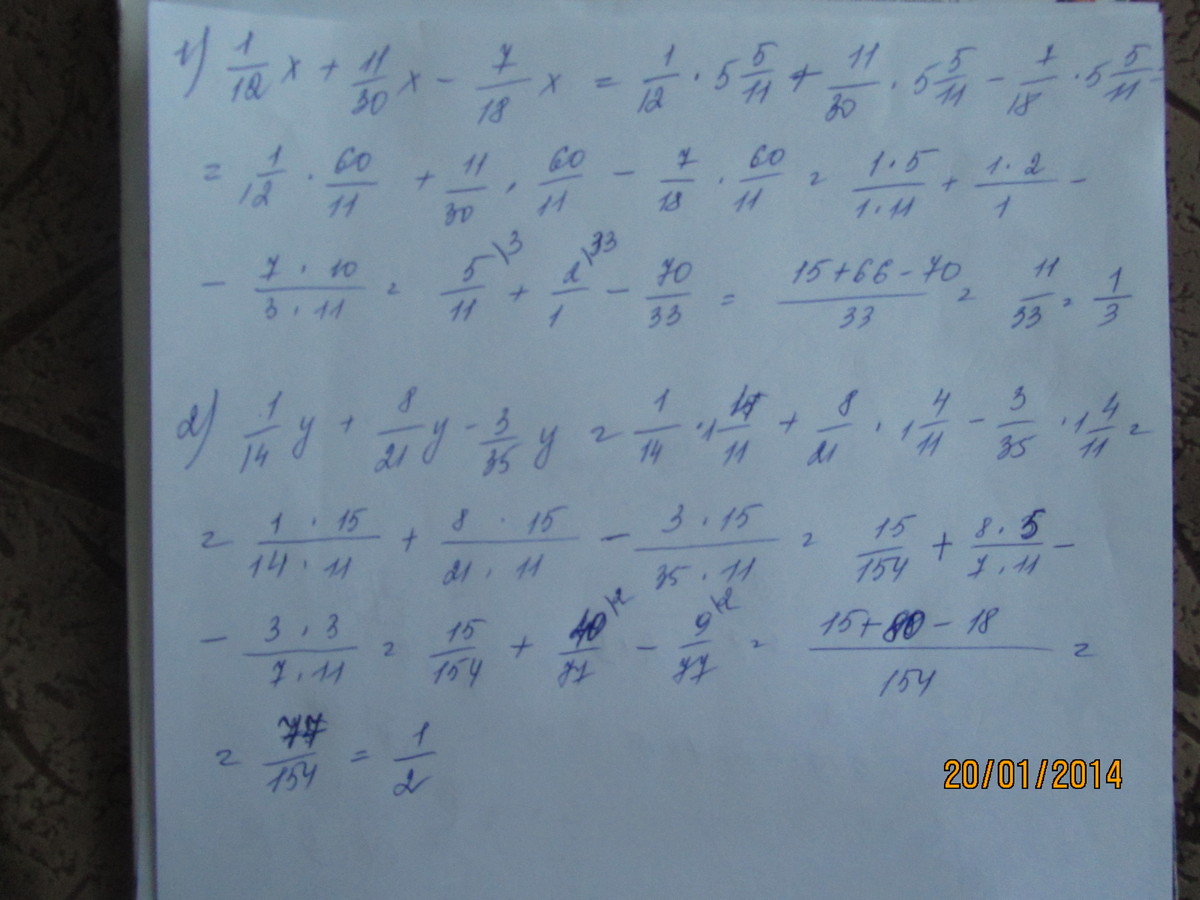 1) 1/12 x + 11/30 x - 7/18 x = 1/12 · 5 5/11 + 11/30 · 5 5/11 - 7/18 · 5 5/11 =
= 1/12 · 60/11 + 11/30 · 60/11 - 7/18 · 60/11 = 1·5/1·11 + 1·2/1 -
- 7·10/3·11 = 5/11 \3 + 2/1 \33 - 70/33 = 15+66-70/33 = 11/33 = 1/3
2) 1/14 y + 8/21 y - 3/35 y = 1/14 · 1 4/11 + 8/21 · 1 4/11 - 3/35 · 1 4/11 =
= 1·15/14·11 + 8·15/21·11 - 3·15/35·11 = 15/154 + 8·5/7·11 -
- 3·3/7·11 = 15/154 + 40/77 \2 - 9/77 \2 = 15+80-18/154 =
= 77/154 = 1/2
20/01/2014